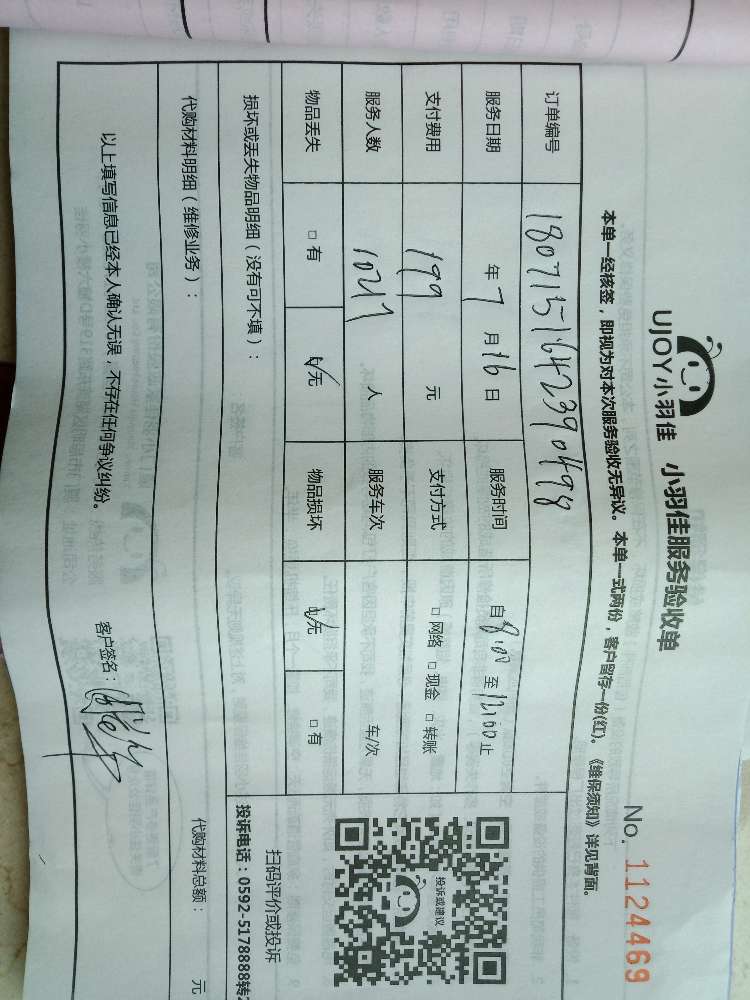 UJOY小羽佳 小羽佳服务验收单
No. 1124469
本单一经核签，即视为对本次服务验收无异议。本单一式两份，客户留存一份(红)。《维保须知》详见背面。
订单编号 1807151642390498
服务日期 年 7 月 16 日 服务时间 自 8:00 至 12:00 止
支付费用 199 元 支付方式 □ 网络 □ 现金 □ 转账
服务人数 人 服务车次 车/次
物品丢失 □ 有 ☑ 无 物品损坏 ☑ 无 □ 有
损坏或丢失物品明细（没有可不填）：
代购材料明细（维修业务）： 代购材料总额： 元
以上填写信息已经本人确认无误，不存在任何争议纠纷。 客户签名：
投诉或建议
扫码评价或投诉
投诉电话：0592-5178888转